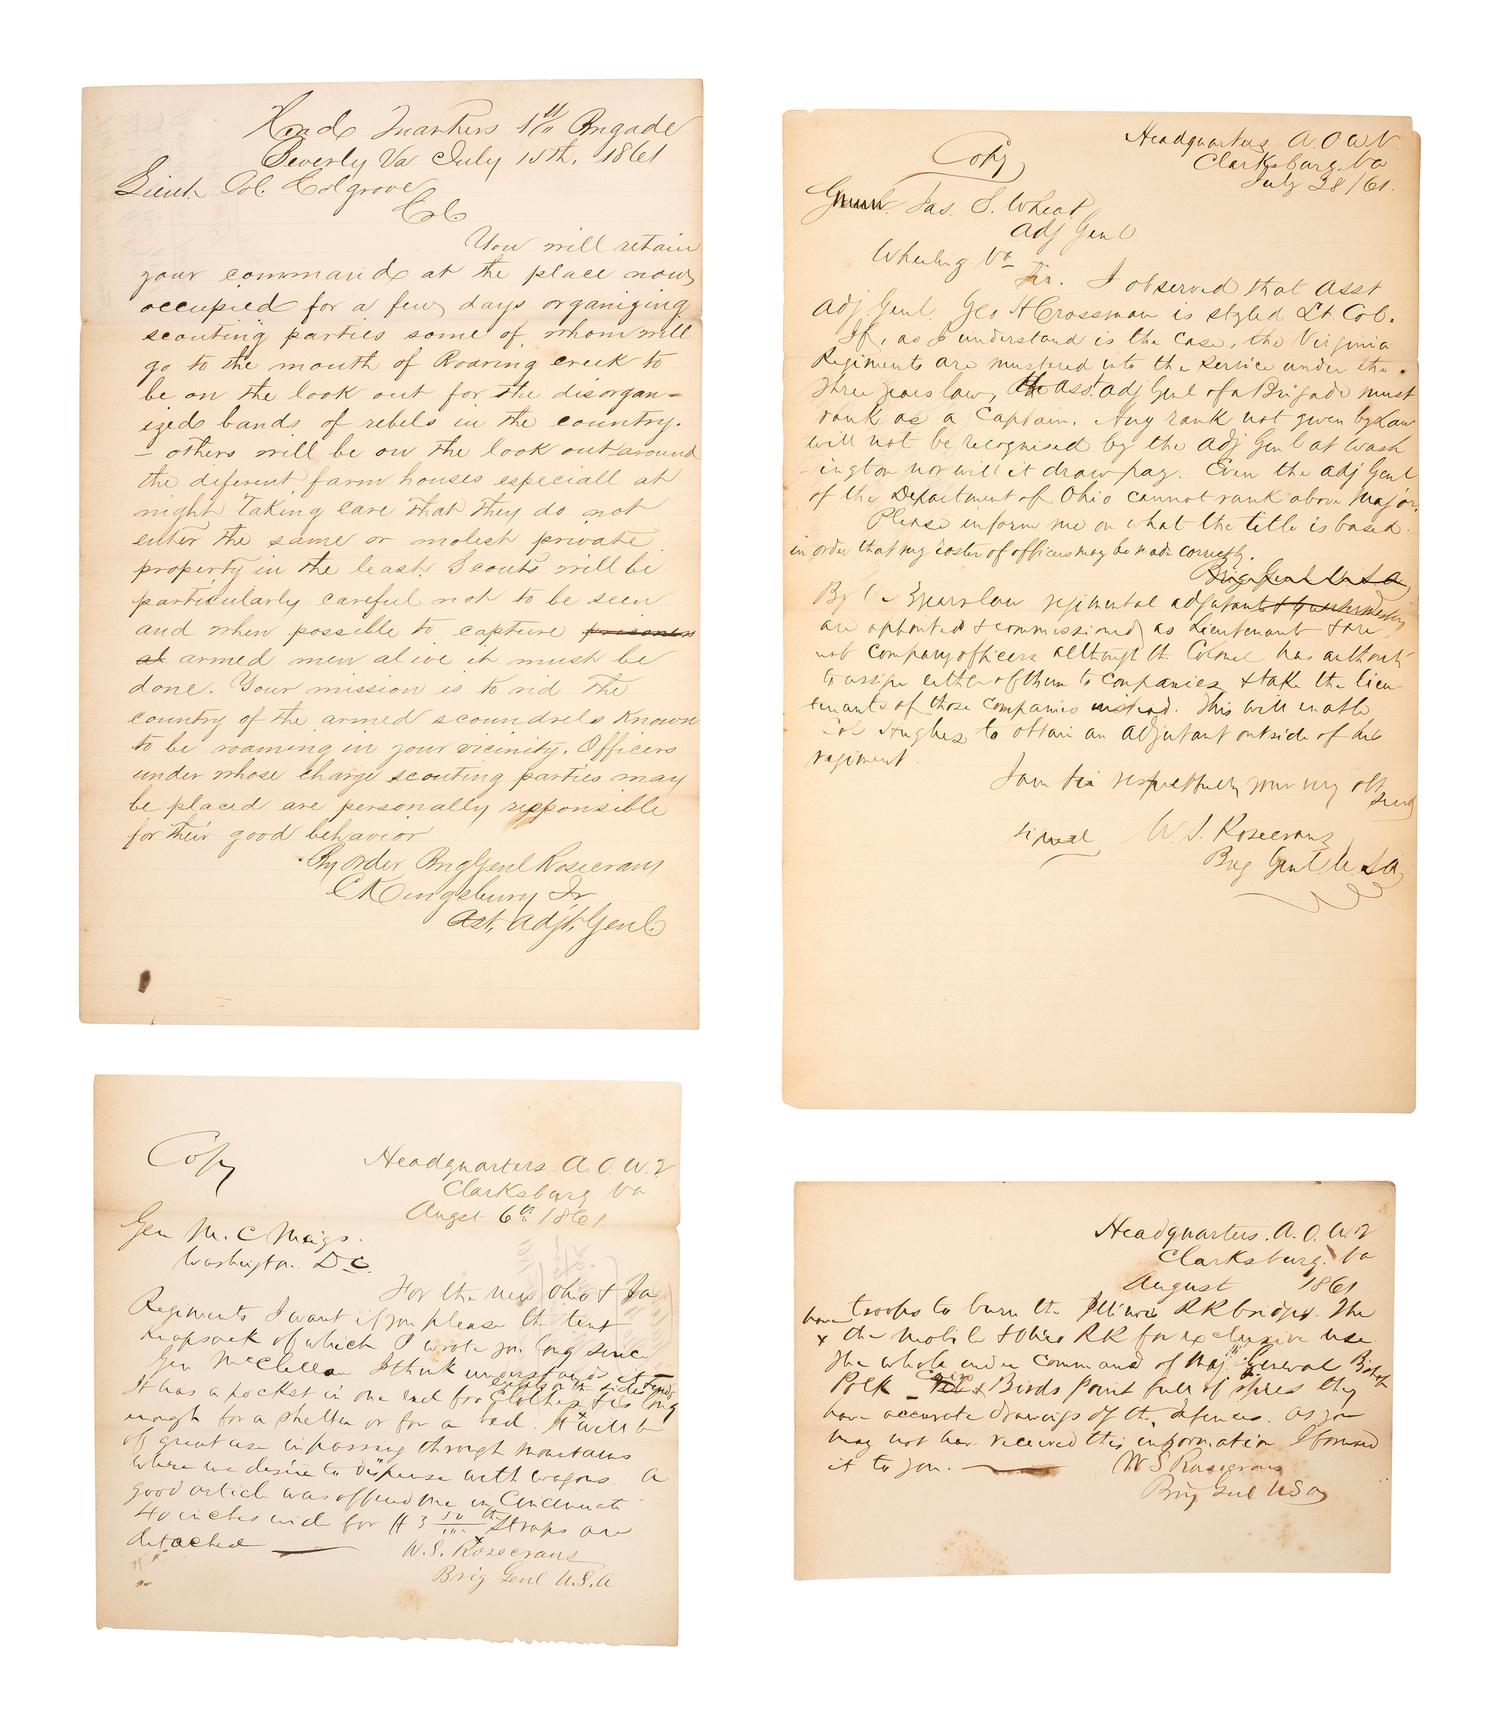 Head Quarters 1st Brigade
Beverly Va July 15th, 1861
Lieut. Col. Colgrove
Col
You will retain
your command at the place now
occupied for a few days organizing
scouting parties some of whom will
go to the mouth of Roaring creek to
be on the look out for the disorgan=
ized bands of rebels in the country.
– others will be on the look out around
the diferent farm houses especiall at
night taking care that they do not
enter the same or molest private
property in the least. Scouts will be
particularly careful not to be seen
and when possible to capture prisoners
al armed men alive it must be
done. Your mission is to rid the
country of the armed scoundrels known
to be roaming in your vicinity. Officers
under whose charge scouting parties may
be placed are personally responsible
for their good behavior
By order Brig Genl Rosecrans
C Kingsbury Jr
Ast. Adjt. Genl.
Copy
Headquarters A.O.W.V.
Clarksburg. Va
July 28/61.
Jas. S. Wheat
Adj Genl
Wheeling Va
Sir. I observed that Asst
Adj Genl. Geo H Crossman is styled Lt. Col.
If, as I understand is the case, the Virginia
Regiments are mustered into the service under the
three years law, the Asst. Adj Genl of a Brigade must
rank as a Captain. Any rank not given by Law
will not be recognised by the Adj Genl at Wash
-ington nor will it draw pay. Even the Adj Genl
of the Department of Ohio cannot rank above Major.
Please inform me on what the title is based.
in order that my roster of officers may be made correctly.
Brig Genl U S A
By the 3 years law regimental adjutants & quartermasters
are appointed & commissioned as Lieutenant & are
not company officers although the Colonel has authority
to assign either of them to Companies & take the lieu-
tenants of those companies instead. This will enable
Col Hughes to obtain an Adjutant outside of his
regiment.
I am Sir respectfully your very obt
Servt
Signed W. S. Rosecrans
Brig Genl U.S.A
Copy
Headquarters A.O.W.V
Clarksburg. Va
August 6th 1861.
Gen M. C Meigs.
Washington. D C.
For the new Ohio & Va
Regiments I want if you please the tent
knapsack of which I wrote you long since
Gen McClellan I think understands it
It has a pocket in one end for clothes & is long
enough for a shelter or for a bed. It will be
of great use in passing through mountains
where we desire to dispense with wagons. A
good article was offered me in Cincinnati
40 inches wide for $3 50/100 the Straps are
detached
W. S. Rosecrans
Brig Genl U.S.A
Headquarters. A.O.W.V
Clarksburg. Va
August 1861
have troops to burn the Illinois RR bridges. The
x the Mobile & Ohio RR for exclusive use
The whole under command of Maj. General Bishop
Polk – Cairo & Birds Point full of spies they
have accurate drawings of the defences. As you
may not have received this information I forward
it to you.
W S Rosecrans
Brig Genl U S A